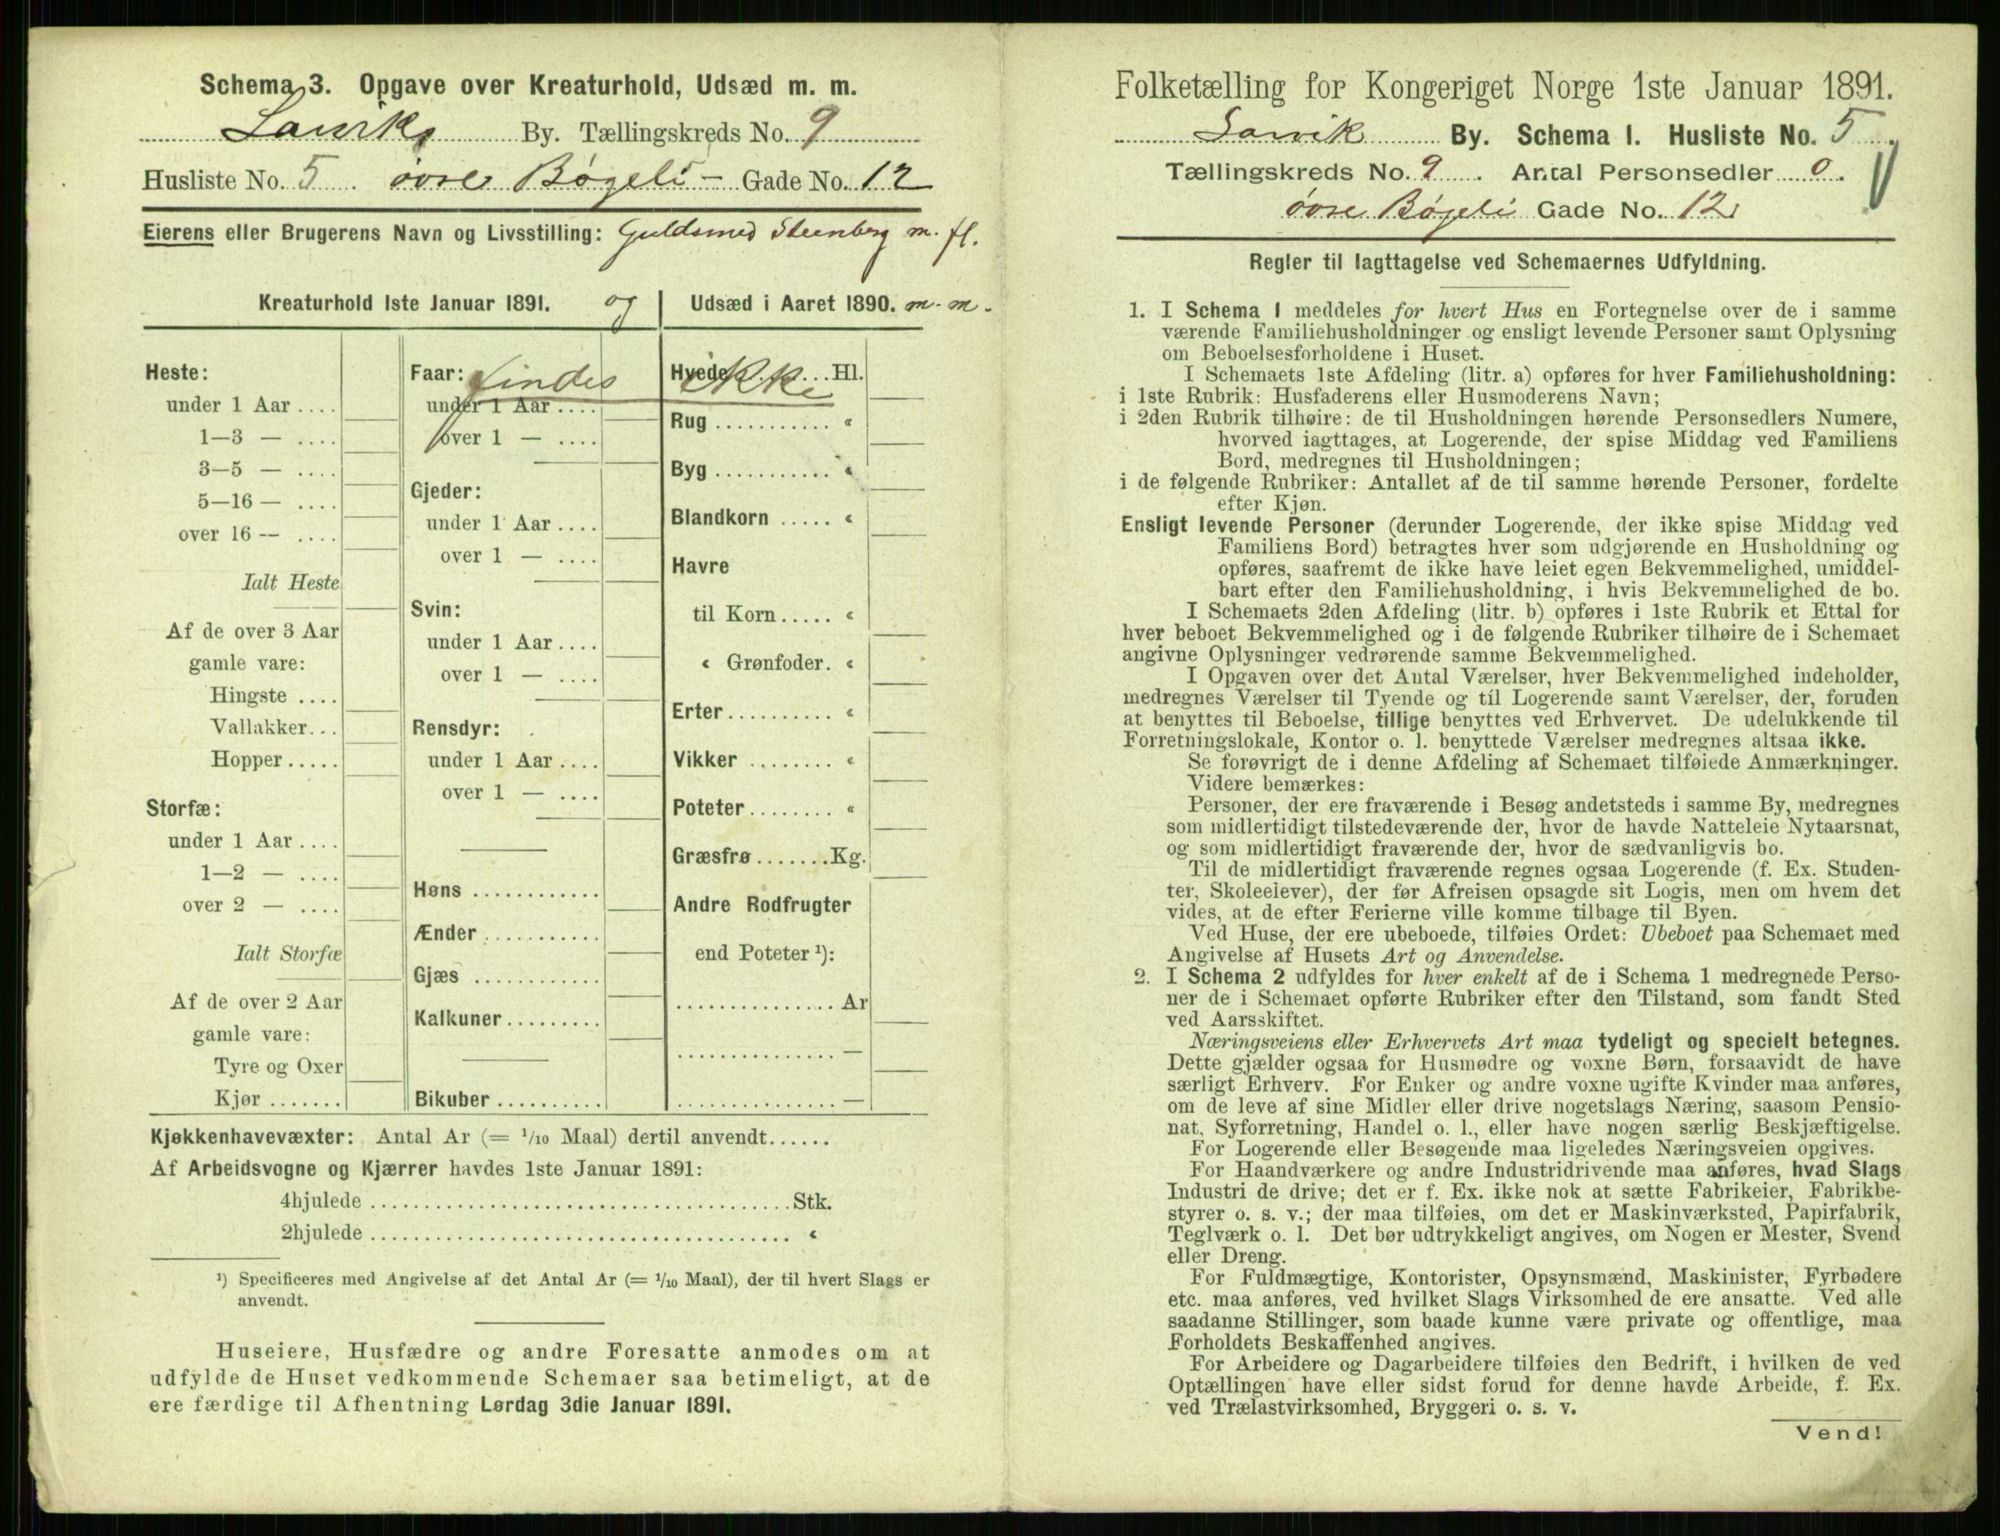 Schema 3. Opgave over Kreaturhold, Udsæd m. m.
Laurviks By. Tællingskreds No. 9
Husliste No. 5 øvre Bøgeli - Gade No. 12
Eierens eller Brugerens Navn og Livsstilling: Guldsmed Steenberg m. fl.
Kreaturhold 1ste Januar 1891. og
Udsæd i Aaret 1890. m. m.
findes ikke
Heste:
under 1 Aar ....
1—3 — ....
3—5 — ....
5—16 — ....
over 16 — ....
Ialt Heste
Af de over 3 Aar
gamle vare:
Hingste ....
Vallakker...
Hopper.....
Storfæ:
under 1 Aar ....
1—2 — ....
over 2 — ....
Ialt Storfæ
Af de over 2 Aar
gamle vare:
Tyre og Oxer
Kjør .......
Faar:
under 1 Aar ....
over 1 — ....
Gjeder:
under 1 Aar ....
over 1 — ....
Svin:
under 1 Aar ....
over 1 — ....
Rensdyr:
under 1 Aar ....
over 1 — ....
Høns ............
Ænder ...........
Gjæs ............
Kalkuner.........
Bikuber ..........
Hvede ........ Hl.
Rug ........... «
Byg ........... «
Blandkorn ..... «
Havre
til Korn ..... «
« Grønfoder. «
Erter.......... «
Vikker ........ «
Poteter........ «
Græsfrø .......Kg.
Andre Rodfrugter
end Poteter ¹):
............... Ar
............... —
............... —
Kjøkkenhavevæxter: Antal Ar (= 1/10 Maal) dertil anvendt......
Af Arbeidsvogne og Kjærrer havdes 1ste Januar 1891:
4hjulede ..................................... Stk.
2hjulede ..................................... «
¹) Specificeres med Angivelse af det Antal Ar (= 1/10 Maal), der til hvert Slags er
anvendt.
Huseiere, Husfædre og andre Foresatte anmodes om at
udfylde de Huset vedkommende Schemaer saa betimeligt, at de
ere færdige til Afhentning Lørdag 3die Januar 1891.
Folketælling for Kongeriget Norge 1ste Januar 1891.
Larvik By. Schema I. Husliste No. 5
Tællingskreds No. 9. Antal Personsedler 0.
øvre Bøgeli Gade No. 12
Regler til Iagttagelse ved Schemaernes Udfyldning.
1. I Schema 1 meddeles for hvert Hus en Fortegnelse over de i samme
værende Familiehusholdninger og ensligt levende Personer samt Oplysning
om Beboelsesforholdene i Huset.
I Schemaets 1ste Afdeling (litr. a) opføres for hver Familiehusholdning:
i 1ste Rubrik: Husfaderens eller Husmoderens Navn;
i 2den Rubrik tilhøire: de til Husholdningen hørende Personsedlers Numere,
hvorved iagttages, at Logerende, der spise Middag ved Familiens
Bord, medregnes til Husholdningen;
i de følgende Rubriker: Antallet af de til samme hørende Personer, fordelte
efter Kjøn.
Ensligt levende Personer (derunder Logerende, der ikke spise Middag ved
Familiens Bord) betragtes hver som udgjørende en Husholdning og
opføres, saafremt de ikke have leiet egen Bekvemmelighed, umiddel-
bart efter den Familiehusholdning, i hvis Bekvemmelighed de bo.
I Schemaets 2den Afdeling (litr. b) opføres i 1ste Rubrik et Ettal for
hver beboet Bekvemmelighed og i de følgende Rubriker tilhøire de i Schemaet
angivne Oplysninger vedrørende samme Bekvemmelighed.
I Opgaven over det Antal Værelser, hver Bekvemmelighed indeholder,
medregnes Værelser til Tyende og til Logerende samt Værelser, der, foruden
at benyttes til Beboelse, tillige benyttes ved Erhvervet. De udelukkende til
Forretningslokale, Kontor o. l. benyttede Værelser medregnes altsaa ikke.
Se forøvrigt de i denne Afdeling af Schemaet tilføiede Anmærkninger.
Videre bemærkes:
Personer, der ere fraværende i Besøg andetsteds i samme By, medregnes
som midlertidigt tilstedeværende der, hvor de havde Natteleie Nytaarsnat,
og som midlertidigt fraværende der, hvor de sædvanligvis bo.
Til de midlertidigt fraværende regnes ogsaa Logerende (f. Ex. Studen-
ter, Skoleelever), der før Afreisen opsagde sit Logis, men om hvem det
vides, at de efter Ferierne ville komme tilbage til Byen.
Ved Huse, der ere ubeboede, tilføies Ordet: Ubeboet paa Schemaet med
Angivelse af Husets Art og Anvendelse.
2. I Schema 2 udfyldes for hver enkelt af de i Schema 1 medregnede Perso-
ner de i Schemaet opførte Rubriker efter den Tilstand, som fandt Sted
ved Aarsskiftet.
Næringsveiens eller Erhvervets Art maa tydeligt og specielt betegnes.
Dette gjælder ogsaa for Husmødre og voxne Børn, forsaavidt de have
særligt Erhverv. For Enker og andre voxne ugifte Kvinder maa anføres,
om de leve af sine Midler eller drive nogetslags Næring, saasom Pensio-
nat, Syforretning, Handel o. l., eller have nogen særlig Beskjæftigelse.
For Logerende eller Besøgende maa ligeledes Næringsveien opgives.
For Haandværkere og andre Industridrivende maa anføres, hvad Slags
Industri de drive; det er f. Ex. ikke nok at sætte Fabrikeier, Fabrikbe-
styrer o. s. v.; der maa tilføies, om det er Maskinværksted, Papirfabrik,
Teglværk o. l. Det bør udtrykkeligt angives, om Nogen er Mester, Svend
eller Dreng.
For Fuldmægtige, Kontorister, Opsynsmænd, Maskinister, Fyrbødere
etc. maa anføres, ved hvilket Slags Virksomhed de ere ansatte. Ved alle
saadanne Stillinger, som baade kunne være private og offentlige, maa
Forholdets Beskaffenhed angives.
For Arbeidere og Dagarbeidere tilføies den Bedrift, i hvilken de ved
Optællingen have eller sidst forud for denne havde Arbeide, f. Ex.
ved Trælastvirksomhed, Bryggeri o. s. v.
Vend!